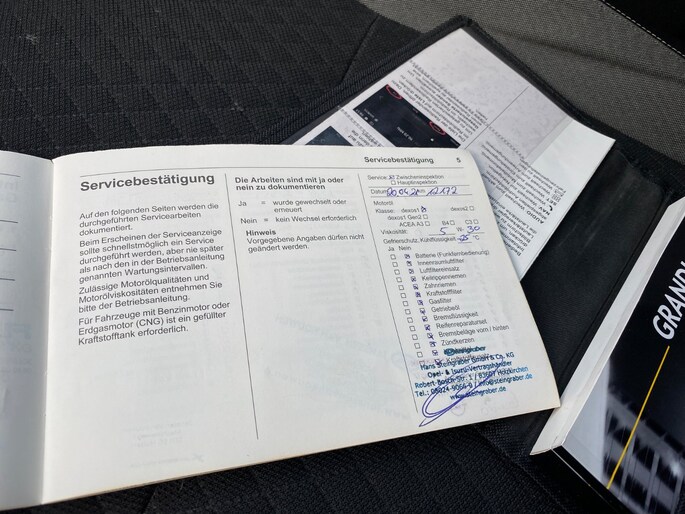 Servicebestätigung 5
Servicebestätigung
Auf den folgenden Seiten werden die
durchgeführten Servicearbeiten
dokumentiert.
Beim Erscheinen der Serviceanzeige
sollte schnellstmöglich ein Service
durchgeführt werden, aber nie später
als nach den in der Betriebsanleitung
genannten Wartungsintervallen.
Zulässige Motorölqualitäten und
Motorölviskositäten entnehmen Sie
bitte der Betriebsanleitung.
Für Fahrzeuge mit Benzinmotor oder
Erdgasmotor (CNG) ist ein gefüllter
Kraftstofftank erforderlich.
Die Arbeiten sind mit ja oder
nein zu dokumentieren
Ja = wurde gewechselt oder
erneuert
Nein = kein Wechsel erforderlich
Hinweis
Vorgegebene Angaben dürfen nicht
geändert werden.
Service: Zwischeninspektion
Hauptinspektion
Datum km 12172
Motoröl
Klasse: dexos1 dexos2
dexos1 Gen2
ACEA A3 B4 C
Viskosität: 5 W- 30
Gefrierschutz, Kühlflüssigkeit: °C
Ja Nein
Batterie (Funkfernbedienung)
Innenraumluftfilter
Luftfiltereinsatz
Keilrippenriemen
Zahnriemen
Kraftstofffilter
Gasfilter
Getriebeöl
Bremsflüssigkeit
Reifenreparaturset
Bremsbeläge vorn / hinten
Zündkerzen
Hans Steingraber GmbH & Co. KG
Opel- & Isuzu-Vertragshändler
Robert-Bosch-Str. 1 / 83607 Holzkirchen
Tel.: 08024-9066-0 / info@steingraber.de
www.steingraber.de
GRANDL